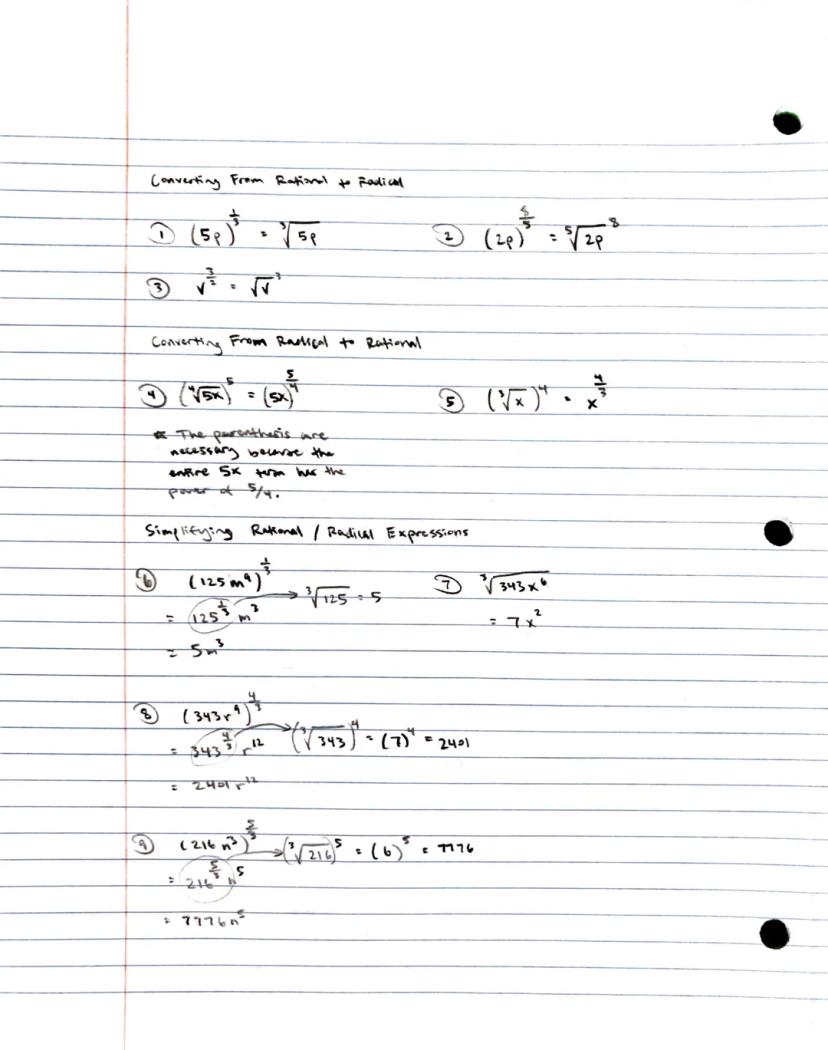 Converting From Rational to Radical
① (5p)^(1/3) = ∛5p
② (2p)^(8/5) = ⁵√2p^8
③ v^(3/2) = √v^3
Converting From Radical to Rational
④ (⁴√5x)^5 = (5x)^(5/4)
⑤ (∛x)^4 = x^(4/3)
* The parenthesis are
necessary because the
entire 5x term has the
power of 5/4.
Simplifying Rational / Radical Expressions
⑥ (125m^9)^(1/3)
= 125^(1/3) m^3 → ∛125 = 5
= 5m^3
⑦ ∛343x^6
= 7x^2
⑧ (343r^9)^(4/3)
= 343^(4/3) r^12 → (∛343)^4 = (7)^4 = 2401
= 2401 r^12
⑨ (216n^3)^(5/3)
= 216^(5/3) n^5 → (∛216)^5 = (6)^5 = 7776
= 7776n^5